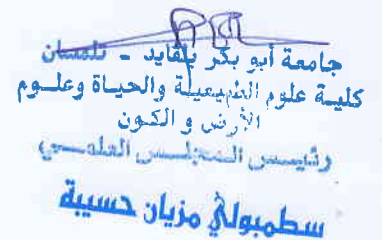 جامعة أبو بكر بلقايد - تلمسان
كلية علوم الطبيعية والحياة وعلوم
الأرض و الكون
رئيس المجلس العلمي
سطمبولي مزيان حسيبة